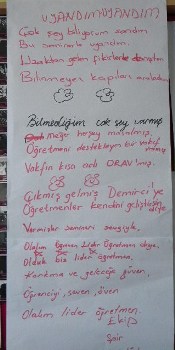 UYANDIM UYANDIM
Çok şey biliyorum sandım
Bu seminerle uyandım.
Uzaktan gelen fikirlerle
Bilmeyen kapıları araladım
Bilmediğim çok şey varmış
meğer herşey masalmış,
Öğretmeni destekleyen bir vakıf varmış
Vakfın kısa adı ORAV'mış.
Çıkmış gelmiş Demirci'ye
Öğretmenler kendini geliştirsin diye
Varmışlar sevgiyle,
Olalım lider öğretmen diye,
Olduk biz lider öğretmen,
Korkma ve geleceğe güven,
Öğrenciyi, seven, öven
Olalım lider öğretmen.
Ekip
Şair